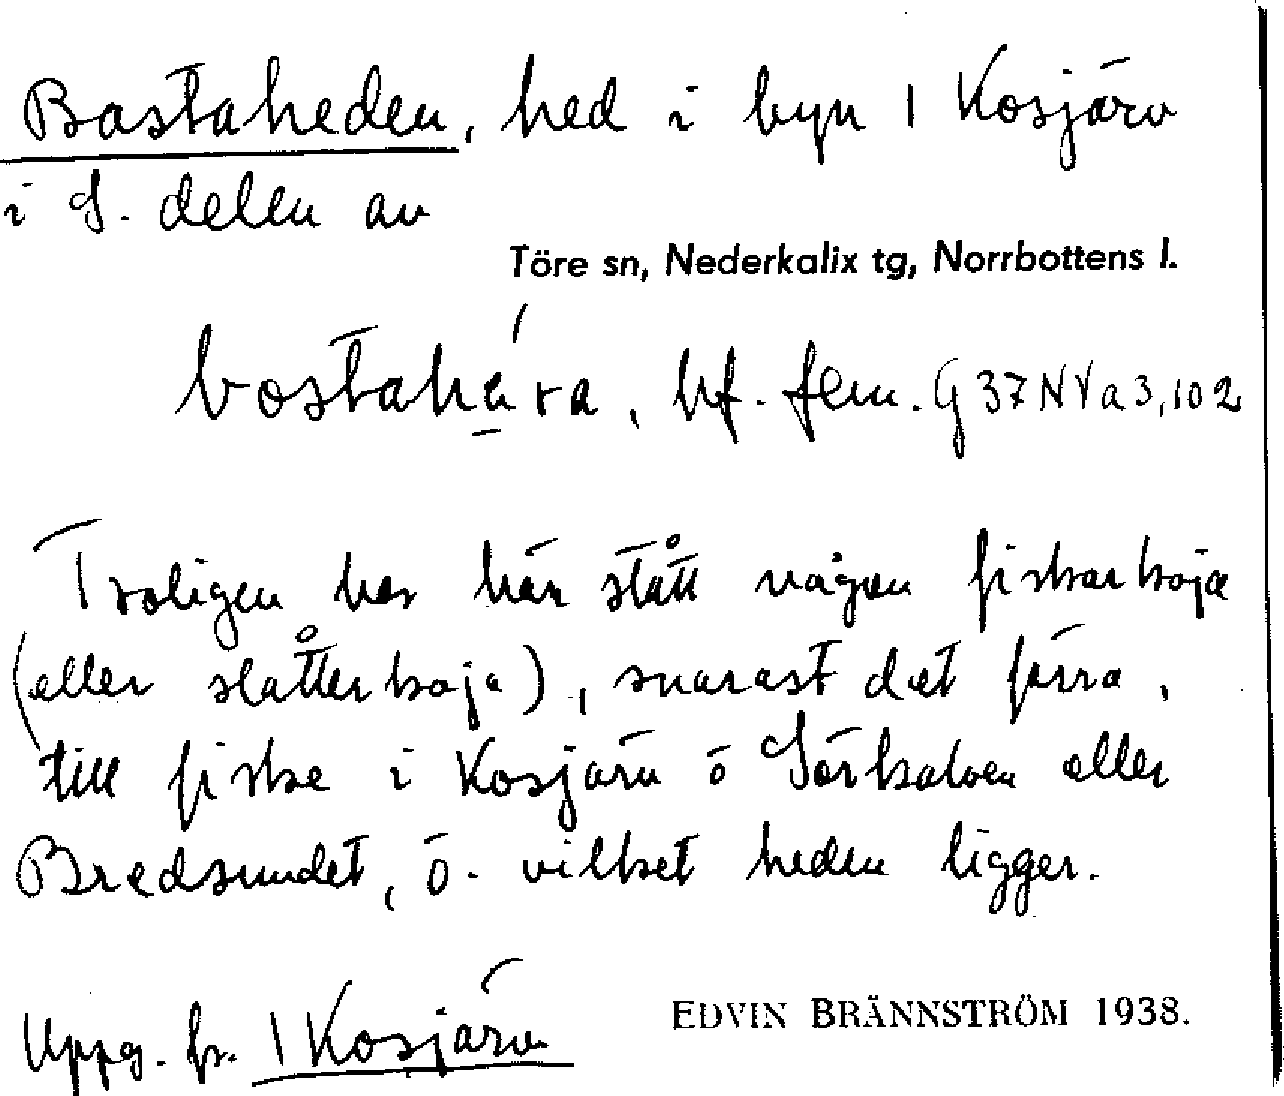 Bastaheden, hed i byn 1 Kosjärv
i S. delen av
Töre sn, Nederkalix tg, Norrbottens l.
bostahéra, hf. fem. G 37 N V a 3, 102
Troligen har här stått någon fiskarkoja
(eller slåtterkoja), snarast det förra,
till fiske i Kosjärv ö Sörkalven eller
Bredsundet, ö. vilket heden ligger.
Uppg. fr. 1 Kosjärv
EDVIN BRÄNNSTRÖM 1938.